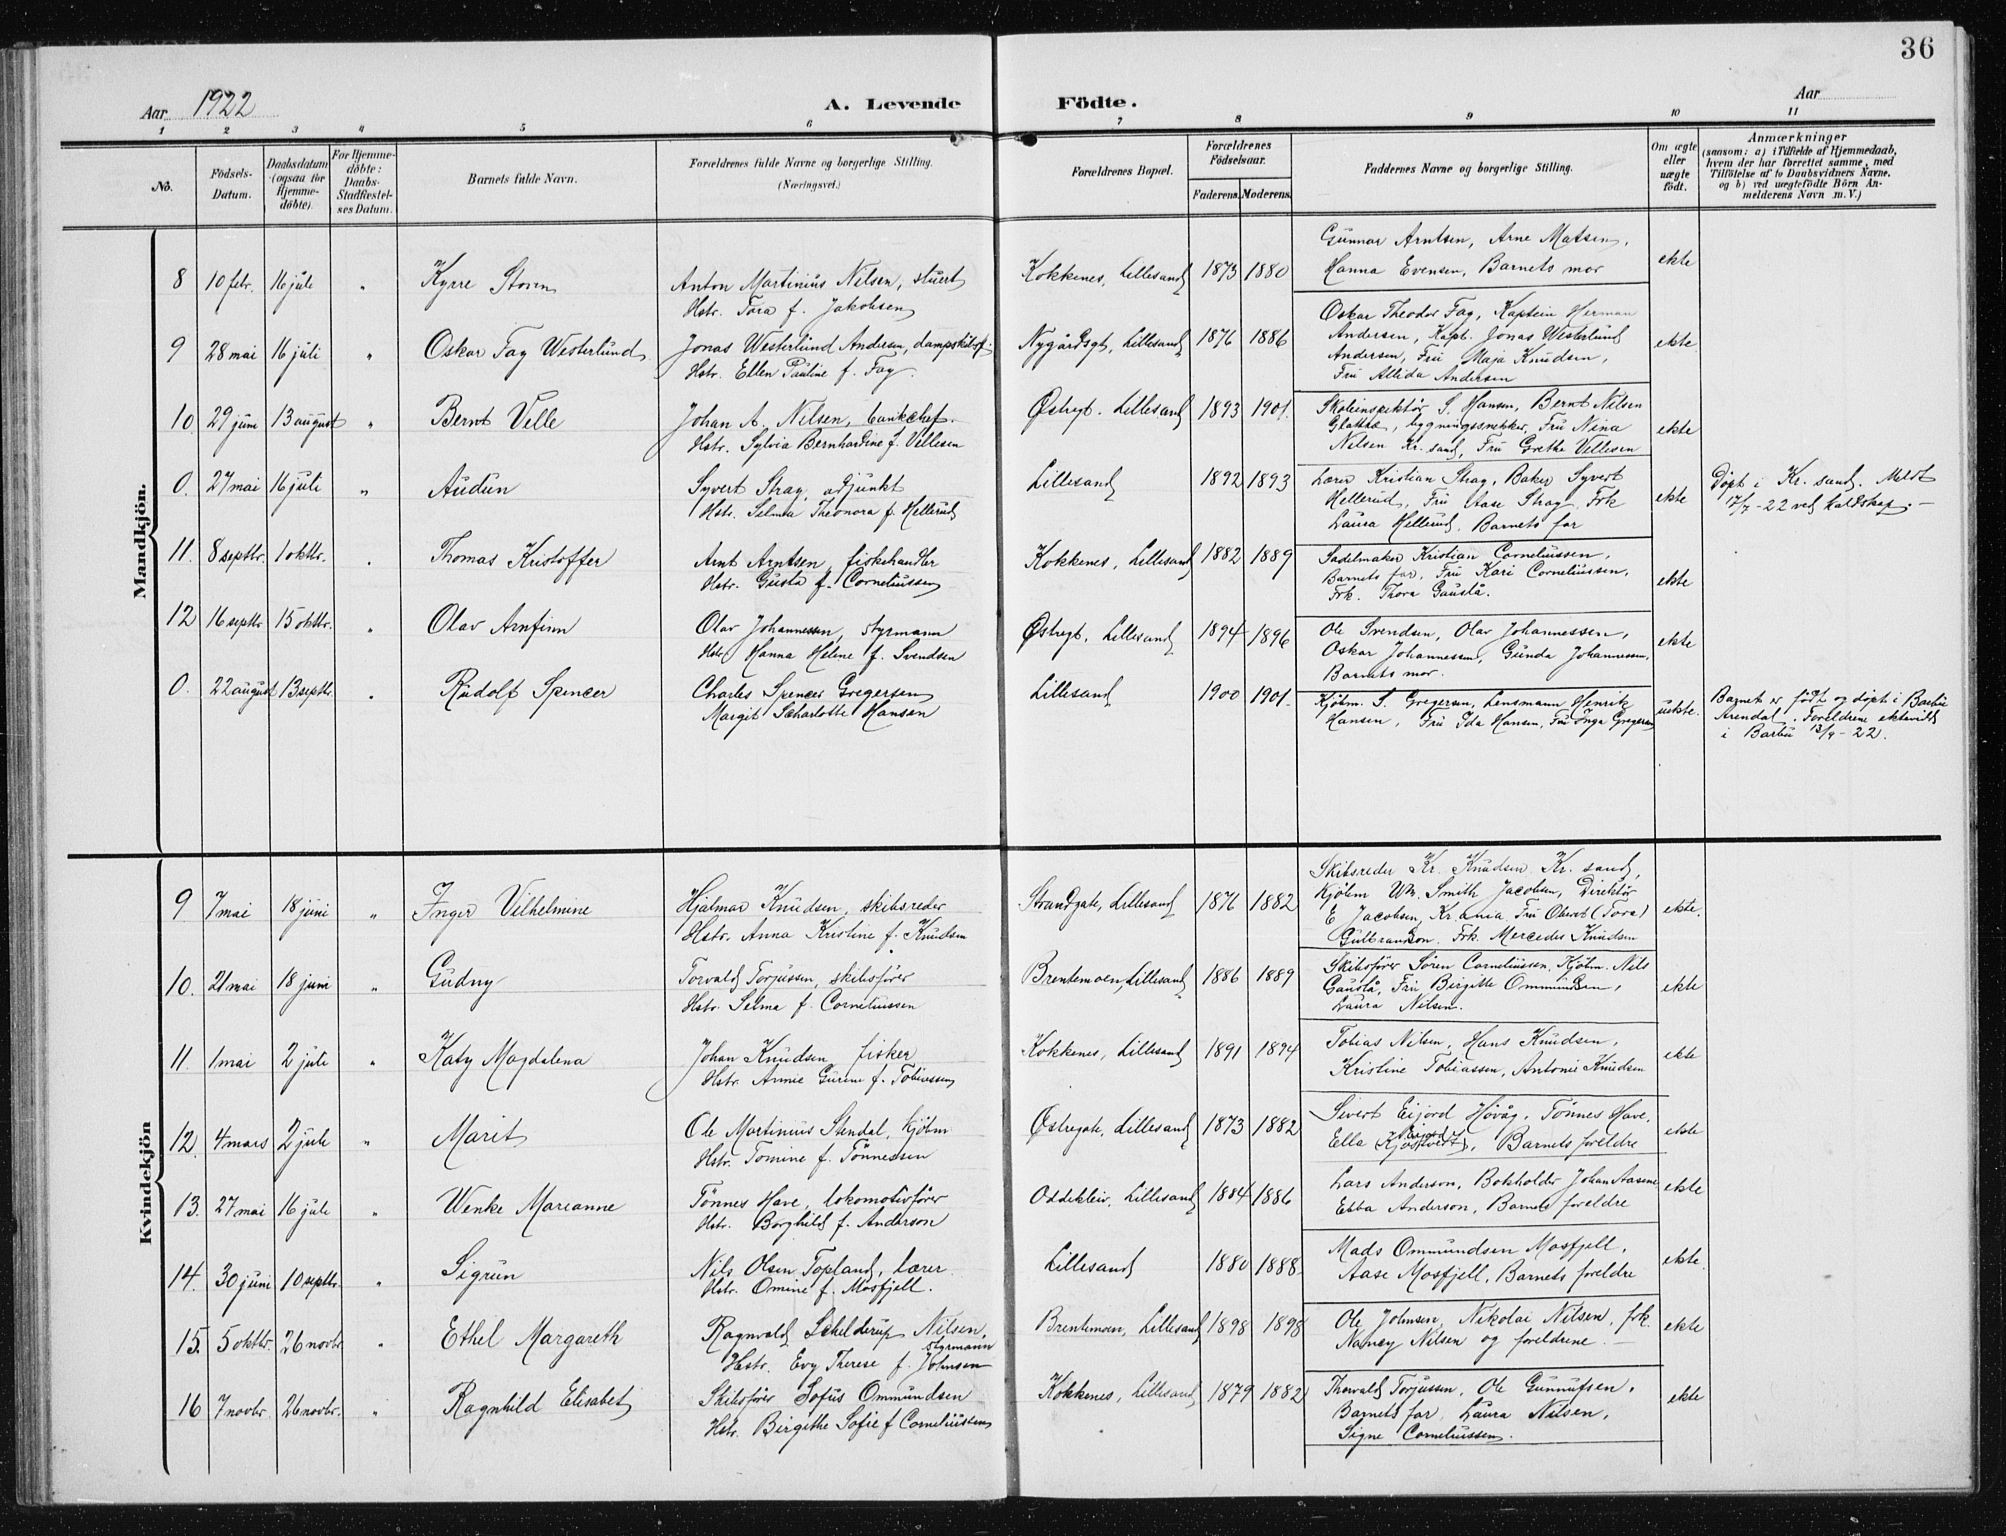 36
Aar 1922
A. Levende Födte.
Aar
1 2 3 4 5 6 7 8 9 10 11
No.
Födsels-Datum.
Daabsdatum (ogsaa for Hjemme-döbte).
For Hjemme-döbte: Daabs-Stadfæstel-ses Datum.
Barnets fulde Navn.
Forældrenes fulde Navne og borgerlige Stilling.
(Næringsvei.)
Forældrenes Bopæl.
Forældrenes Födselsaar.
Faderens. Moderens.
Faddernes Navne og borgerlige Stilling.
Om ægte eller uægte födt.
Anmærkninger
(saasom: a) i Tilfælde af Hjemmedaab,
hvem der har forrettet samme, med
Tilföielse af to Daabsvidners Navne.
og b) ved uægtefödte Börn An-
melderens Navn m. V.)
Mandkjön.
8 10 febr. 16 juli " Kyrre Storm Anton Martinius Nilsen, stuert Kokkenes, Lillesand 1873 1880 Gunnar Arntsen, Arne Matsen, ekte
Hstr. Tora f. Jakobsen Hanna Evensen, Barnets mor
9 28 mai 16 juli " Oskar Fay Westerlund Jonas Westerlund Andersen, dampskibsf. Nygårdsgt, Lillesand 1876 1886 Oskar Theodor Fay, Kaptein Herman ekte
Hstr. Ellen Pauline f. Fay Andersen, Kapt. Jonas Westerlund
Andersen, Fru Maja Knudsen,
Fru Allida Andersen
10 29 juni 13 august " Bernt Velle Johan A. Nilsen, bankchef. Østregt. Lillesand 1893 1901. Skoleinspektør S. Hansen, Bernt Nilsen ekte
Hstr. Sylvia Bernhardine f. Vellesen bygningssnekker, Fru Nina
Nilsen Kr.sand, Fru Grethe Vellesen
0. 27 mai 16 juli " Audun Syvert Stray, adjunkt Lillesand 1892 1893 Lærer Kristian Stray, Baker Syvert ekte Døpt i Kr. sand. Meldt
Hstr. Selma Theonora f. Hellerud Hellerud, Fru Aase Stray, Frk 17/7 - 22 ved kaldskap. —
Laura Hellerud, Barnets far
11. 8 septbr. 1 oktbr. " Thomas Kristoffer Arnt Arntsen, fiskehandler Kokkenes, Lillesand 1882 1889 Sadelmaker Kristian Corneliussen, ekte
Hstr. Gusta f. Corneliussen Barnets far, Fru Kari Corneliussen,
Frk. Thora Gauslå.
12 16 septbr. 15 oktbr. " Olav Arnfinn Olav Johannessen, styrmann Østregt, Lillesand 1894 1896 Ole Svendsen, Olav Johannessen, ekte
Hstr. Hanna Helene f. Svendsen Oskar Johannessen, Gunda Johannessen,
Barnets mor.
0. 22 august 13 septbr. " Rudolf Spencer Charles Spencer Gregersen Lillesand 1900 1901. Kjøbm. S. Gregersen, Lensmann Henrik uekte. Barnet er født og døpt i Barbu
Margit Scharlotte Hansen Hansen, Fru Ida Hansen, Fru Inga Gregersen Arendal. Foreldrene ekteviet
i Barbu 13/9 - 22.
Kvindekjön
9 7 mai 18 juni " Inger Vilhelmine Hjalmar Knudsen, skibsreder Strandgate, Lillesand 1876 1882 Skibsreder Kr. Knudsen Kr. sand, ekte.
Hstr. Anna Kristine f. Knudsen Kjøbm Wm. Smith Jacobsen, Direktør
E Jacobsen, Kr.ania, Fru Oberst (Tora)
Gulbranson. Frk. Mercedes Knudsen
10. 21 mai 18 juni " Gudny Torvald Torjussen, skibsfører Brentemoen, Lillesand 1886 1889 Skibsfører Søren Corneliussen, Kjøbm. Nils ekte
Hstr. Selma f. Corneliussen Gauslå, Fru Birgitte Ommundsen,
Laura Nilsen.
11. 1 mai 2 juli " Katy Magdalena Johan Knudsen, fisker Kokkenes, Lillesand 1891 1894 Tobias Nilsen, Hans Knudsen, ekte
Hstr. Annie Gurine f. Tobiassen Kristine Tobiassen, Antonie Knudsen
12. 4 mars 2 juli " Marit Ole Martinius Stendal, kjöbm Østregate, Lillesand 1873 1882 Sivert Eijord Høvåg, Tønnes Have, ekte
Hstr. Tomine f. Tønnessen Ella, Barnets foreldre
13. 27 mai 16 juli " Wenke Marianne Tønnes Have, lokomotivfører Oddekleiv, Lillesand 1884 1886 Lars Anderson, Bokholder Johan Aasene ekte
Hstr. Borghild f. Anderson Ebba Anderson, Barnets foreldre
14. 30 juni 10 septbr. " Sigrun Nils Olsen Topland, Lærer Lillesand 1880 1888. Mads Ommundsen Mosfjell, ekte.
Hstr. Omine f. Mosfjell. Aase Mosfjell, Barnets foreldre
15. 5 oktbr. 26 novbr. " Ethel Margareth Ragnvald Schelderup Nilsen, styrmann Brentemoen, Lillesand 1898 1898 Ole Johnsen, Nikolai Nilsen, frk. ekte
Hstr. Evy Therese f. Johnsen Nancy Nilsen og foreldrene. —
16 7 novbr. 26 novbr. " Ragnhild Elisabet Skibsfører Sofus Ommundsen Kokkenes, Lillesand 1879 1882 Thorvald Torjussen, Ole Gunnufsen, ekte
Hstr. Birgithe Sofie f Corneliussen Barnets far, Laura Nilsen,
Signe Corneliussen.